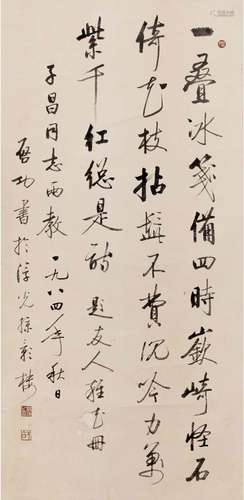 一叠冰笺备四时嶔崎怪石
倚花枝拈髭不费沉吟力万
紫千红总是诗 题友人杂花册
子昌同志两教 一九八四年秋日
启功书于浮光掠影楼